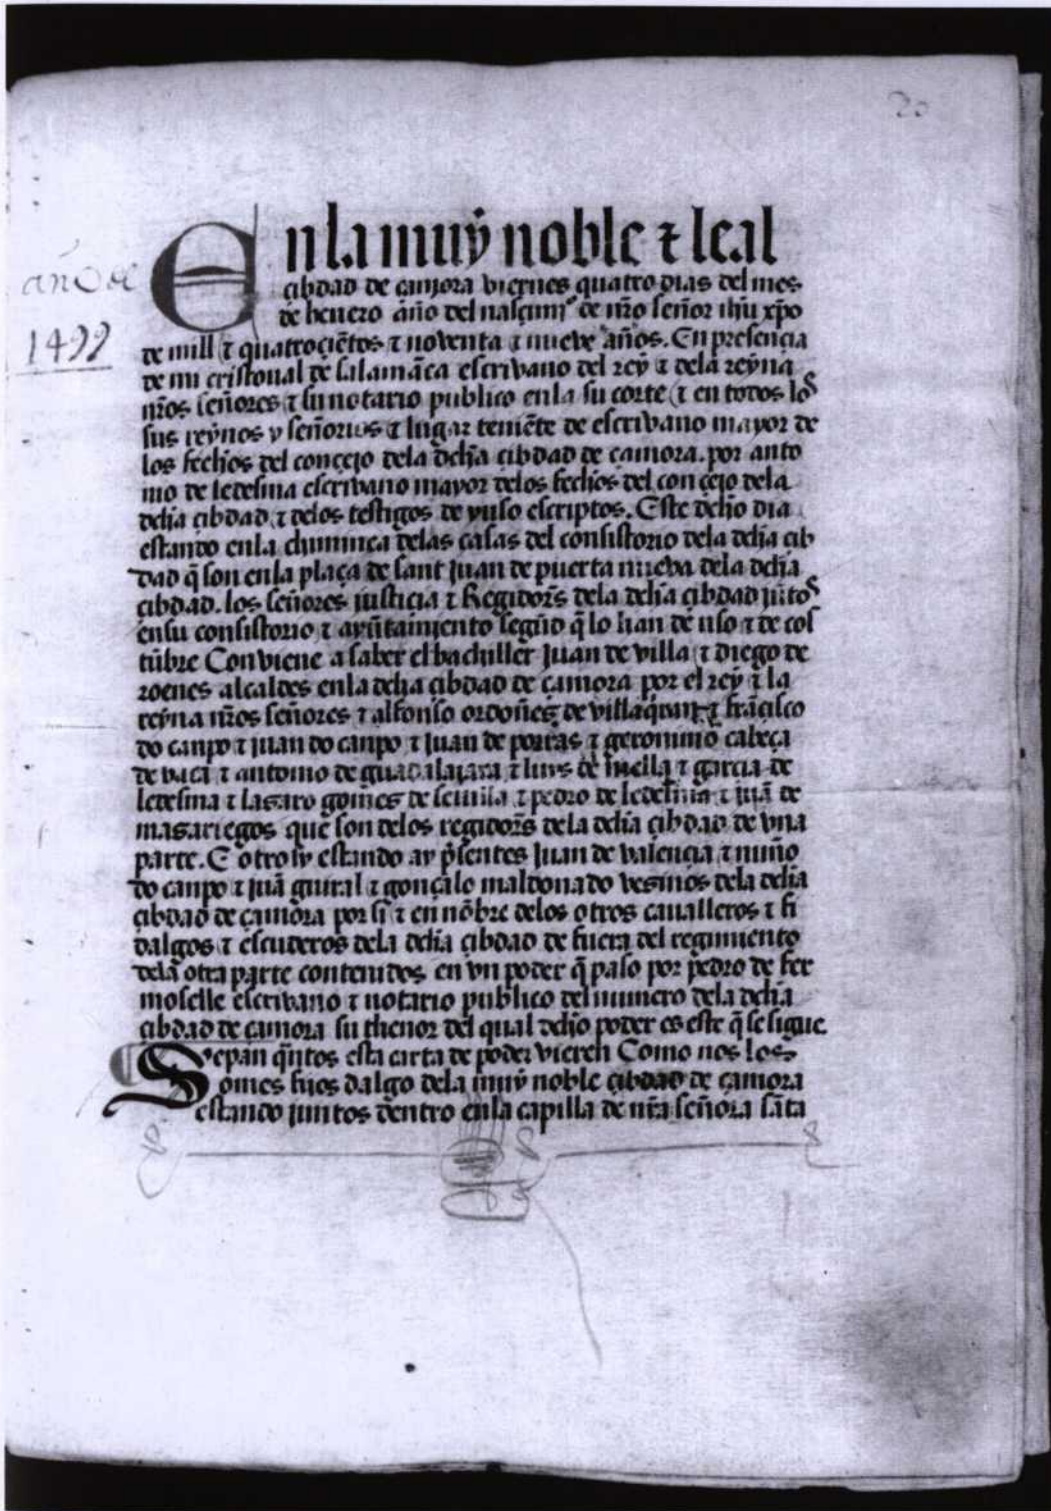 20
año de
1499
En la muy noble ⁊ leal
çibdad de çamora viernes quatro dias del mes
de henero año del nasçimiº de nr̃o señor ihũ xp̃o
de mill ⁊ quatroçiẽtos ⁊ noventa ⁊ nueve años. En presençia
de mi cristoual de salamãca escrivano del rey ⁊ dela reyna
nr̃os señores ⁊ su notario publico enla su corte ⁊ en todos los
sus reynos y señorios ⁊ lugar teniẽte de escrivano mayor de
los fechos del conçejo dela dcħa çibdad de çamora. por anto
nio de ledesma escrivano mayor delos fechos del conçejo dela
dcħa çibdad ⁊ delos testigos de yuso escriptos. Este dcħo dia
estando enla chiminea delas casas del consistorio dela dcħa çib
dad q̃ son enla plaça de sant juan de puerta nueva dela dcħa
çibdad. los señores justicia ⁊ Regidor̃s dela dcħa çibdad jũtos
ensu consistorio ⁊ ayũtamiento segũd q̃ lo han de uso ⁊ de cos
tũbre Conviene a saber el bachiller juan de villa ⁊ diego de
roenes alcaldes enla dcħa çibdad de çamora por el rey ⁊ la
reyna nr̃os señores ⁊ alfonso ordoñez de villaquiran ⁊ frãçisco
do canpo ⁊ juan do canpo ⁊ juan de porras ⁊ geronimo cabeça
de vaca ⁊ antonio de guadalajara ⁊ luys de mella ⁊ garcia de
ledesma ⁊ lazaro gomes de sevilla ⁊ pedro de ledesma ⁊ juã de
mazariegos que son delos regidor̃s dela dcħa çibdad de vna
parte. E otrosy estando ay p̃sentes juan de valencia ⁊ nuño
do canpo ⁊ juã guiral ⁊ gonçalo maldonado vezinos dela dcħa
çibdad de çamora por si ⁊ en nõbre delos otros cavalleros ⁊ fi
dalgos ⁊ escuderos dela dcħa çibdad de fuera del regimiento
dela otra parte contenidos en vn poder q̃ paso por pedro de fer
moselle escrivano ⁊ notario publico del numero dela dcħa
çibdad de çamora su thenor del qual dcħo poder es este q̃ se sigue
Sepan q̃ntos esta carta de poder vieren Como nos los
omes fijos dalgo dela muy noble çibdad de çamora
estando juntos dentro enla capilla de nr̃a señora sãta